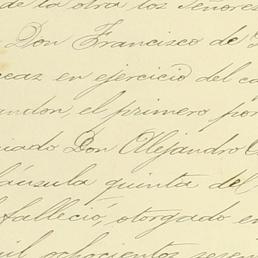 de la otra los Señores
Don Francisco de
ceas en ejercicio del ca
andon, el primero por
ciado Don Alejandro
láusula quinta del
falleció, otorgado en
mil ochocientos sesen